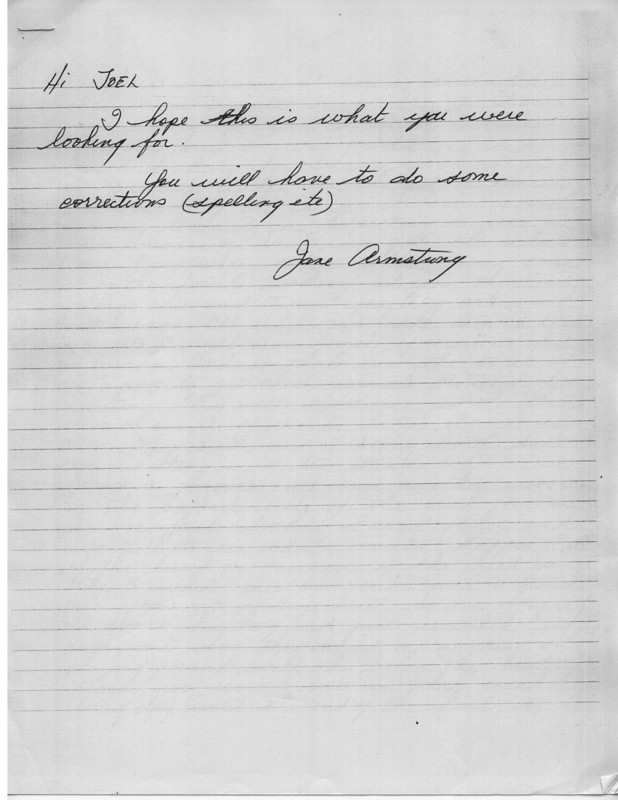 Hi JOEL
I hope this is what you were
looking for.
You will have to do some
corrections (spelling etc)
Jane Armstrong